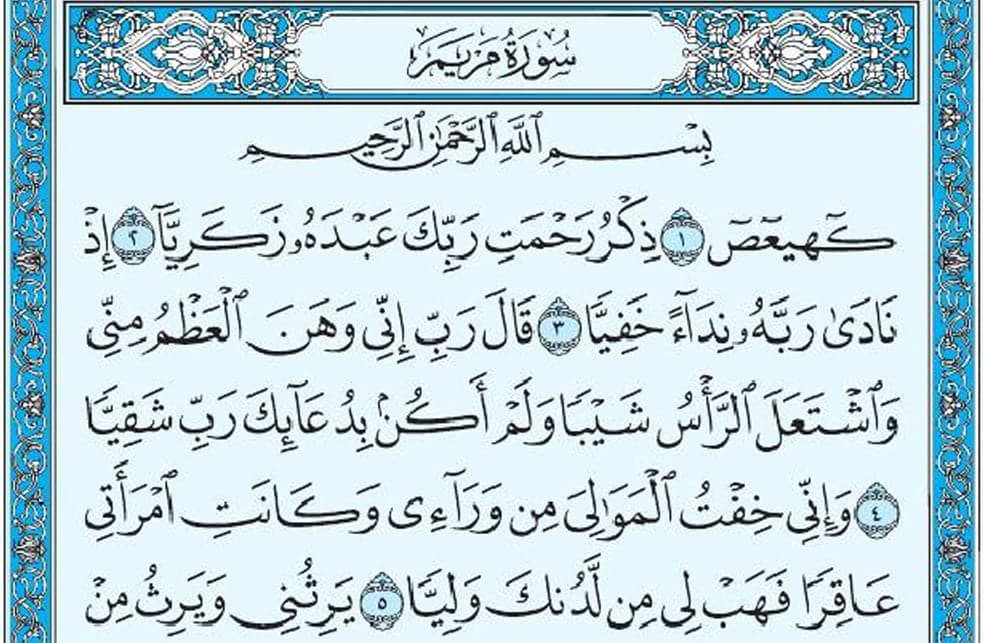 سُورَةُ مَرْيَمَ
بِسْمِ ٱللَّهِ ٱلرَّحْمَٰنِ ٱلرَّحِيمِ
كٓهيعٓصٓ ١ ذِكْرُ رَحْمَتِ رَبِّكَ عَبْدَهُۥ زَكَرِيَّآ ٢ إِذْ
نَادَىٰ رَبَّهُۥ نِدَآءً خَفِيًّا ٣ قَالَ رَبِّ إِنِّى وَهَنَ ٱلْعَظْمُ مِنِّى
وَٱشْتَعَلَ ٱلرَّأْسُ شَيْبًا وَلَمْ أَكُنۢ بِدُعَآئِكَ رَبِّ شَقِيًّا
٤ وَإِنِّى خِفْتُ ٱلْمَوَٰلِىَ مِن وَرَآءِى وَكَانَتِ ٱمْرَأَتِى
عَاقِرًا فَهَبْ لِى مِن لَّدُنكَ وَلِيًّا ٥ يَرِثُنِى وَيَرِثُ مِنْ